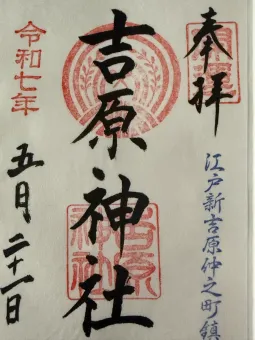 奉拝
江戸新吉原仲之町鎮
吉原神社
令和七年
五月二十一日
吉原
神社